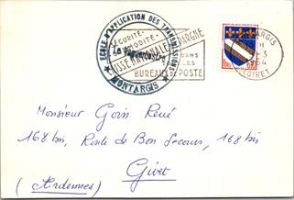 ECOLE D'APPLICATION DES TRANSMISSIONS
MONTARGIS
SÉCURITÉ
CAISSE NATIONALE D'ÉPARGNE
DANS
LES
BUREAUX DE POSTE
MONTARGIS
LOIRET
Monsieur Gorin René
168 bis, Route de Bon Secours, 168 bis
Givet
(Ardennes)